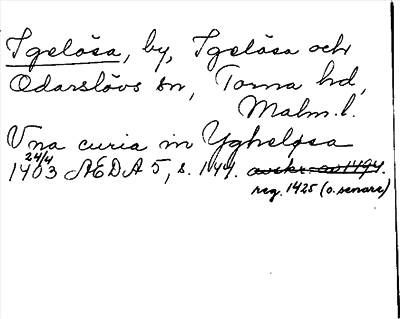 Igelösa, by, Igelösa och
Odarslövs sn, Torna hd,
Malm. l.
Vna curia in Ygheløsa
24/4
1403 ÆDA 5, s. 144. avskr. av 1494.
reg. 1425 (o. senare)